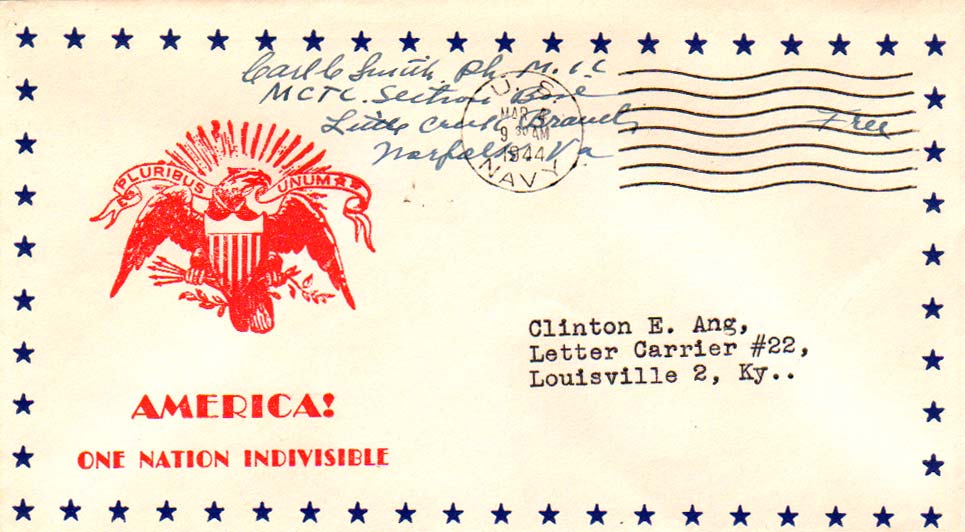 Carl C Smith Ph. M. 1c
MCTC. Section Base
Little Creek Branch,
Norfolk Va
Free
U. S.
MAR
9 30 AM
1944
NAVY
PLURIBUS UNUM
Clinton E. Ang,
Letter Carrier #22,
Louisville 2, Ky..
AMERICA!
ONE NATION INDIVISIBLE